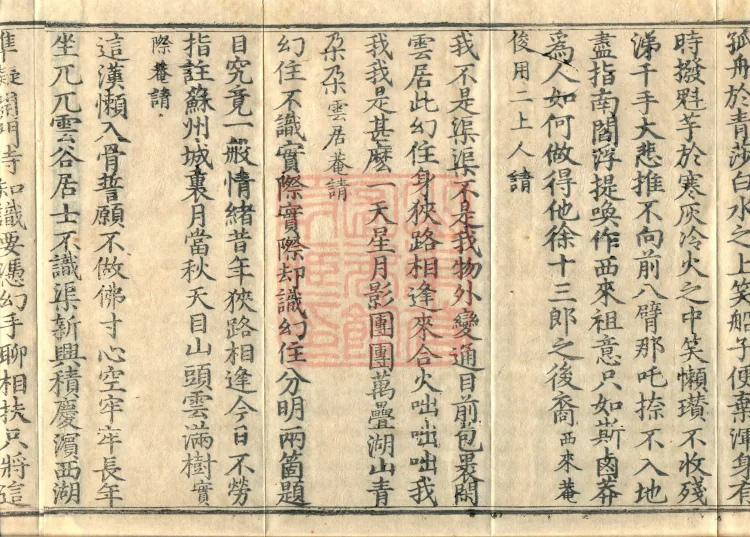 孤舟於青莎白水之上笑船子便棄渾身有
時撥魁芋於寒灰冷火之中笑懶瓚不收殘
涕千手大悲推不向前八臂那吒捺不入地
盡指南閻浮提喚作西來祖意只如斯鹵莽
爲人如何做得他徐十三郎之後裔西來菴
俊用二上人請
我不是渠渠不是我物外變通目前包裹閙
雲居此幻住身狹路相逢來合火咄咄咄我
我我是甚麽一天星月影團團萬疊湖山青
朶朶雲居菴請
幻住不識實際實際却識幻住分明兩箇題
目究竟一般情緒昔年狹路相逢今日不勞
指註蘇州城裏月當秋天目山頭雲滿樹實
際菴請
這漢懶入骨誓願不做佛寸心空牢牢長年
坐兀兀雲谷居士不識渠新興積慶濵西湖
隼疑開門寺知識要憑幻手聊相扶只將這